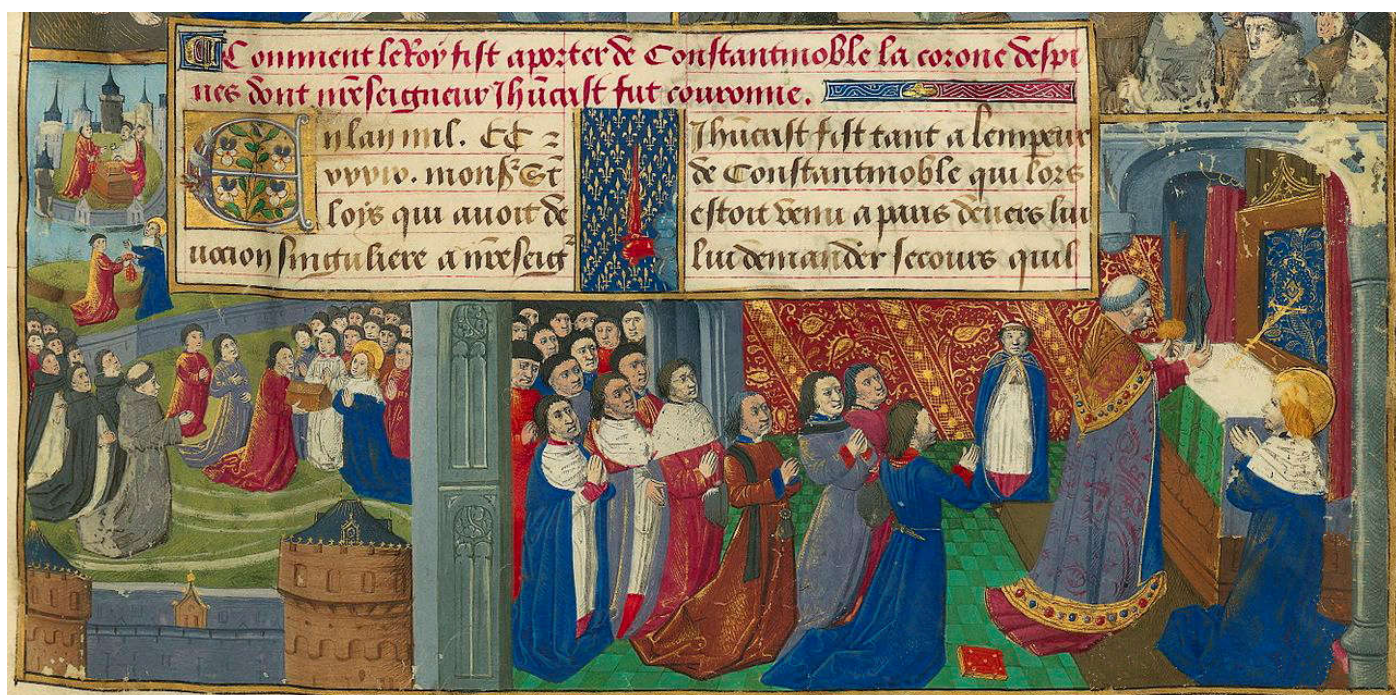 Comment le Roy fist aporter de Constantinoble la corone despi
nes dont nreseigneur Jhucrist fut couronne.
En lan mil. CC
monsr St
loys qui auoit de
uocion singuliere a nreseigr
Jhucrist fist tant a lempeur
de Constantinoble qui lors
estoit venu a paris deuers lui
lui demander secours quil